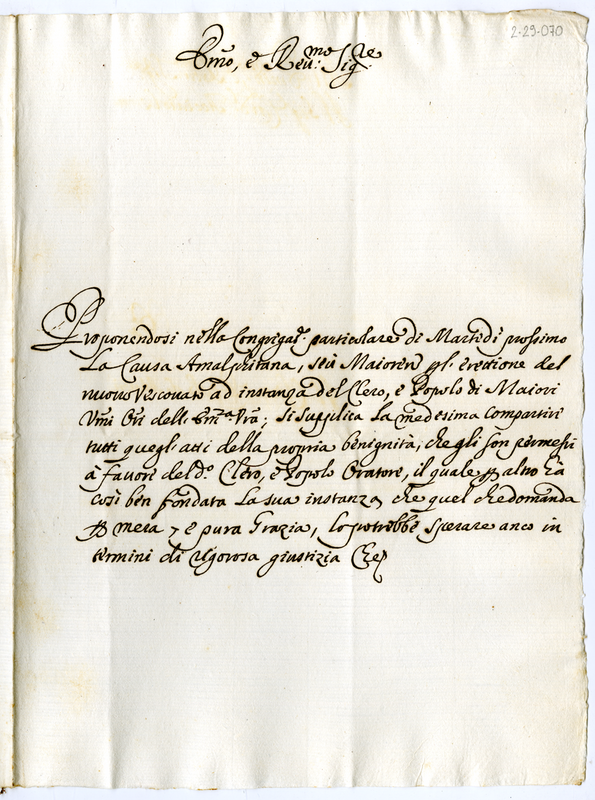 2-29-070
Em̃o, e Reu:mo Sig:re
Proponendosi nella Congregat: particolare di Martedi prossimo
La Causa Amalphitana, seù Maioren pl. erectione del
nuouo Vescouato ad instanza del Clero, e Popolo di Maiori
Vmi Ori dell' Em:a Vrã; si supplica La medesima compartire
tutti quegl' atti della propria benignità, che gli son permessi
à fauore del d.o Clero, e Popolo Oratore, il quale p altro hà
così ben fondata La sua instanza, che quel che domanda
p mera, e pura Grazia, lo potrebbe sperare anco in
termini di rigorosa giustizia Che